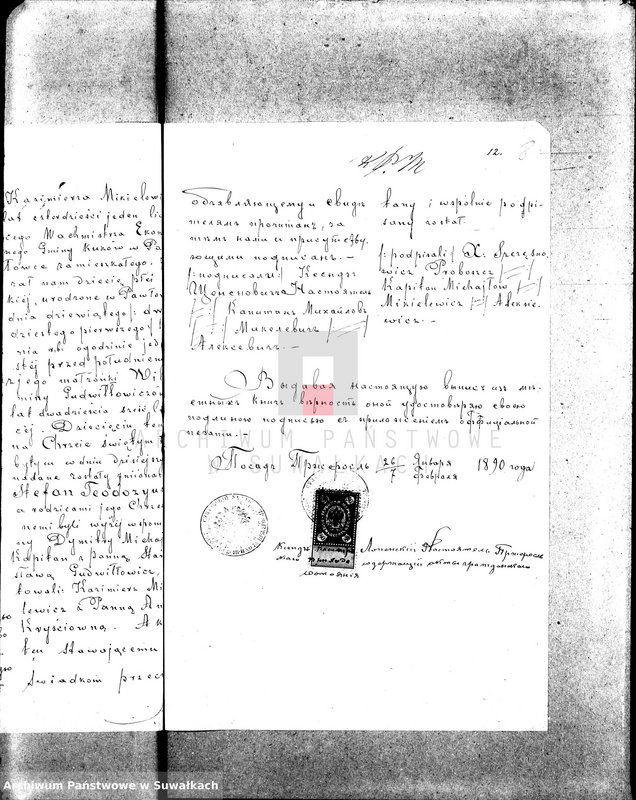 12.
Kazimierza Mikielow
lat czterdzieści jeden
Wachmistrza Ekon
nego Gminy Kuków w Pa
łowce zamieszkałego.
żał nam Dziecię płci
kiej, urodzone w Pawło
dnia dziewiątego
dziestego pierwszego
nia r.b. o godzinie jed
stéj przed południem
jego małżonki
miny Gudwiłłowiczo
lat dwadzieścia
céj. Dziecięciu te
na Chrzcie świętym
bytym w dniu dzisiejszy
nadane zostały Imiona
Stefan Teodozyusz
a rodzicami jego Chrze
nemi byli wyżéj wspom
ny Dymitry Michaj
Kapitan z Panną Sta
sławą Gudwiłłowicz,
towali: Kazimierz Mi
lewicz z Panną An
Kryściówną. Ak
ten stawającemu
świadkom przec
объявляющему и свидѣ
телямъ прочитанъ, за
тѣмъ нами и присутству
ющими подписанъ. —
/:подписали:/ Ксендзъ
Щенсновичъ Настоятель
/—/ Капитанъ Михайловъ
/—/ Миколевичъ /—/
Алексевичъ. —
tany i wspólnie podpi
sany został. —
/:podpisali:/ X. Szczęsno
wicz Proboszcz /—/
Kapitan Michajłow /—/
Mikielewicz /—/ Aleksie
wicz. —
Выдавая настоящую выпись изъ мѣ
стныхъ книгъ вѣрность оной удостовѣряю своею
подписью съ приложеніемъ оффиціальной
печати.
Посадъ Пржеросль 26/7 Января/Февраля 1890 года
Ксендзъ Лопенскій Настоятель Пржеросль
содержащій акты гражданскаго
состоянія
ARCHIWUM PAŃSTWOWE
W SUWAŁKACH
Archiwum Państwowe w Suwałkach